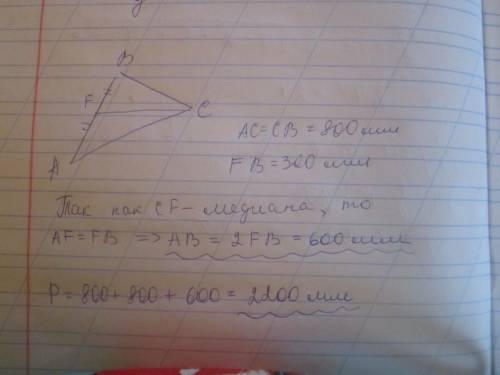 B
F
C
A
AC=CB=800мм
FB=300мм
Так как CF-медиана, то
AF=FB => AB = 2FB = 600мм
P=800+800+600=2200мм